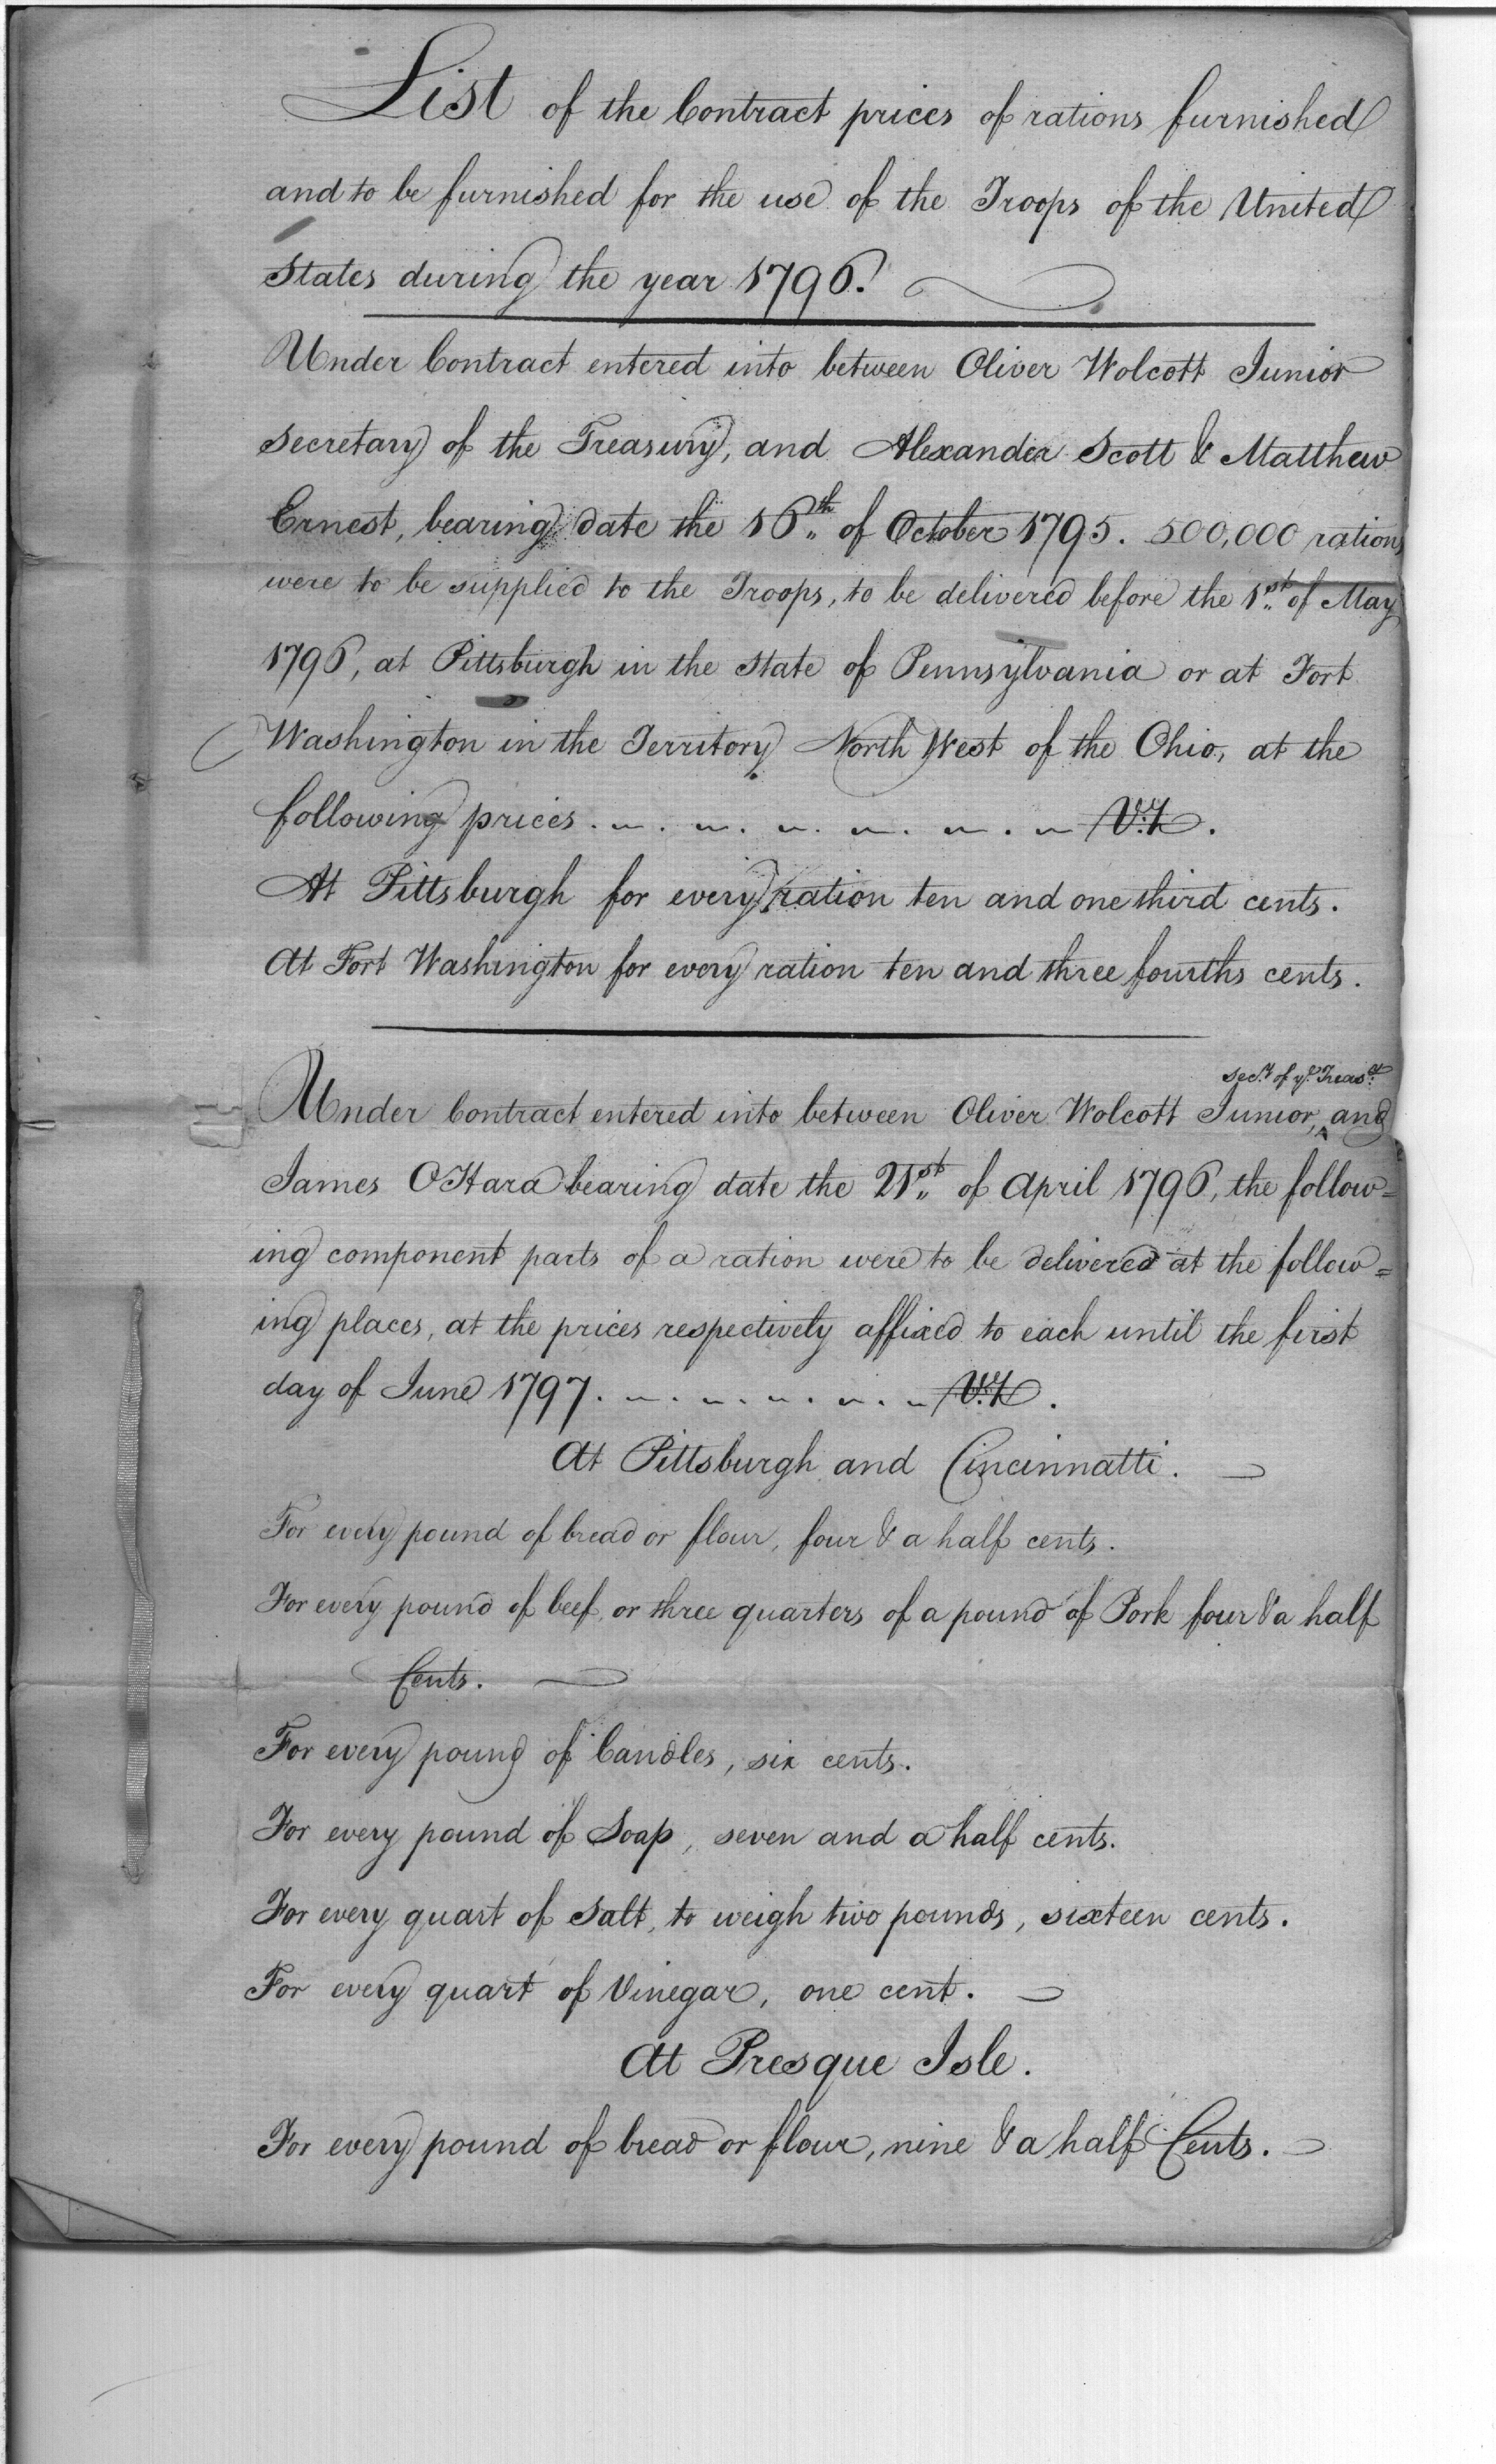 List of the Contract prices of rations furnished
and to be furnished for the use of the Troops of the United
States during the year 1796.
Under Contract entered into between Oliver Wolcott Junior
Secretary of the Treasury, and Alexander Scott & Matthew
Ernest, bearing date the 16th of October 1795. 500,000 rations
were to be supplied to the Troops, to be delivered before the 1st of May
1796, at Pittsburgh in the State of Pennsylvania or at Fort
Washington in the Territory North West of the Ohio, at the
following prices . . . . . . . Viz.
At Pittsburgh for every ration ten and one third cents.
At Fort Washington for every ration ten and three fourths cents.
Secy. of ye. Treasy.
Under Contract entered into between Oliver Wolcott Junior, ^ and
James OHara bearing date the 21st of April 1796, the follow=
ing component parts of a ration were to be delivered at the follow=
ing places, at the prices respectively affixed to each until the first
day of June 1797. . . . . . Viz.
At Pittsburgh and Cincinnatti.
For every pound of bread or flour, four & a half cents.
For every pound of beef, or three quarters of a pound of Pork four & a half
Cents.
For every pound of Candles, six cents.
For every pound of Soap, seven and a half cents.
For every quart of Salt, to weigh two pounds, sixteen cents.
For every quart of Vinegar, one cent.
At Presque Isle.
For every pound of bread or flour, nine & a half Cents.